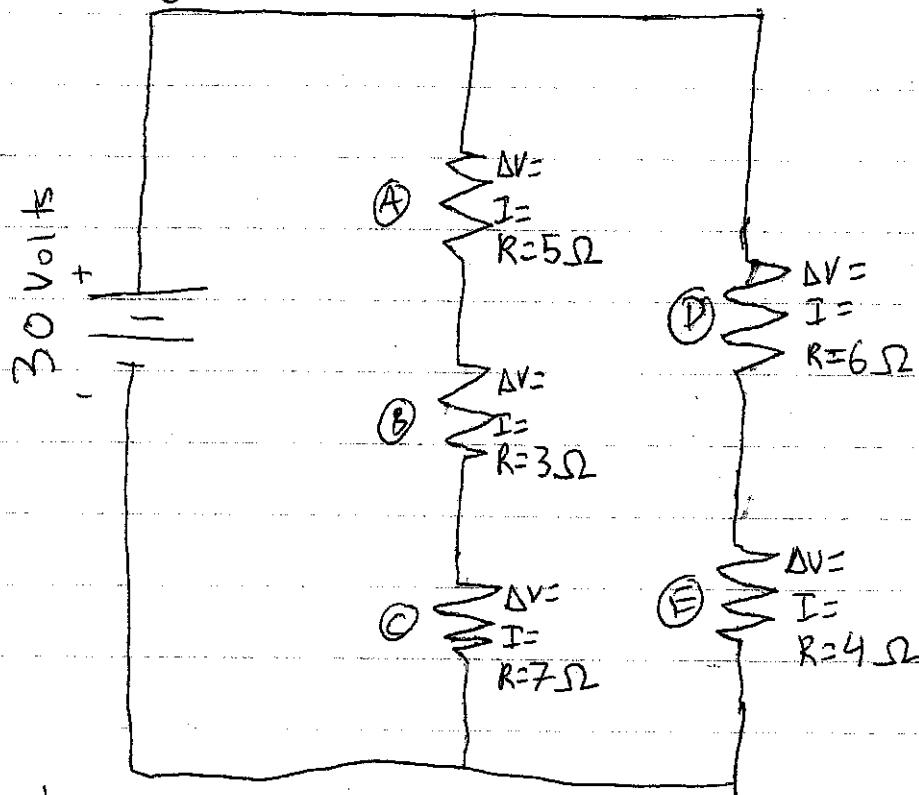 30 volts
+
-
A
ΔV=
I=
R=5Ω
B
ΔV=
I=
R=3Ω
C
ΔV=
I=
R=7Ω
D
ΔV=
I=
R=6Ω
E
ΔV=
I=
R=4Ω